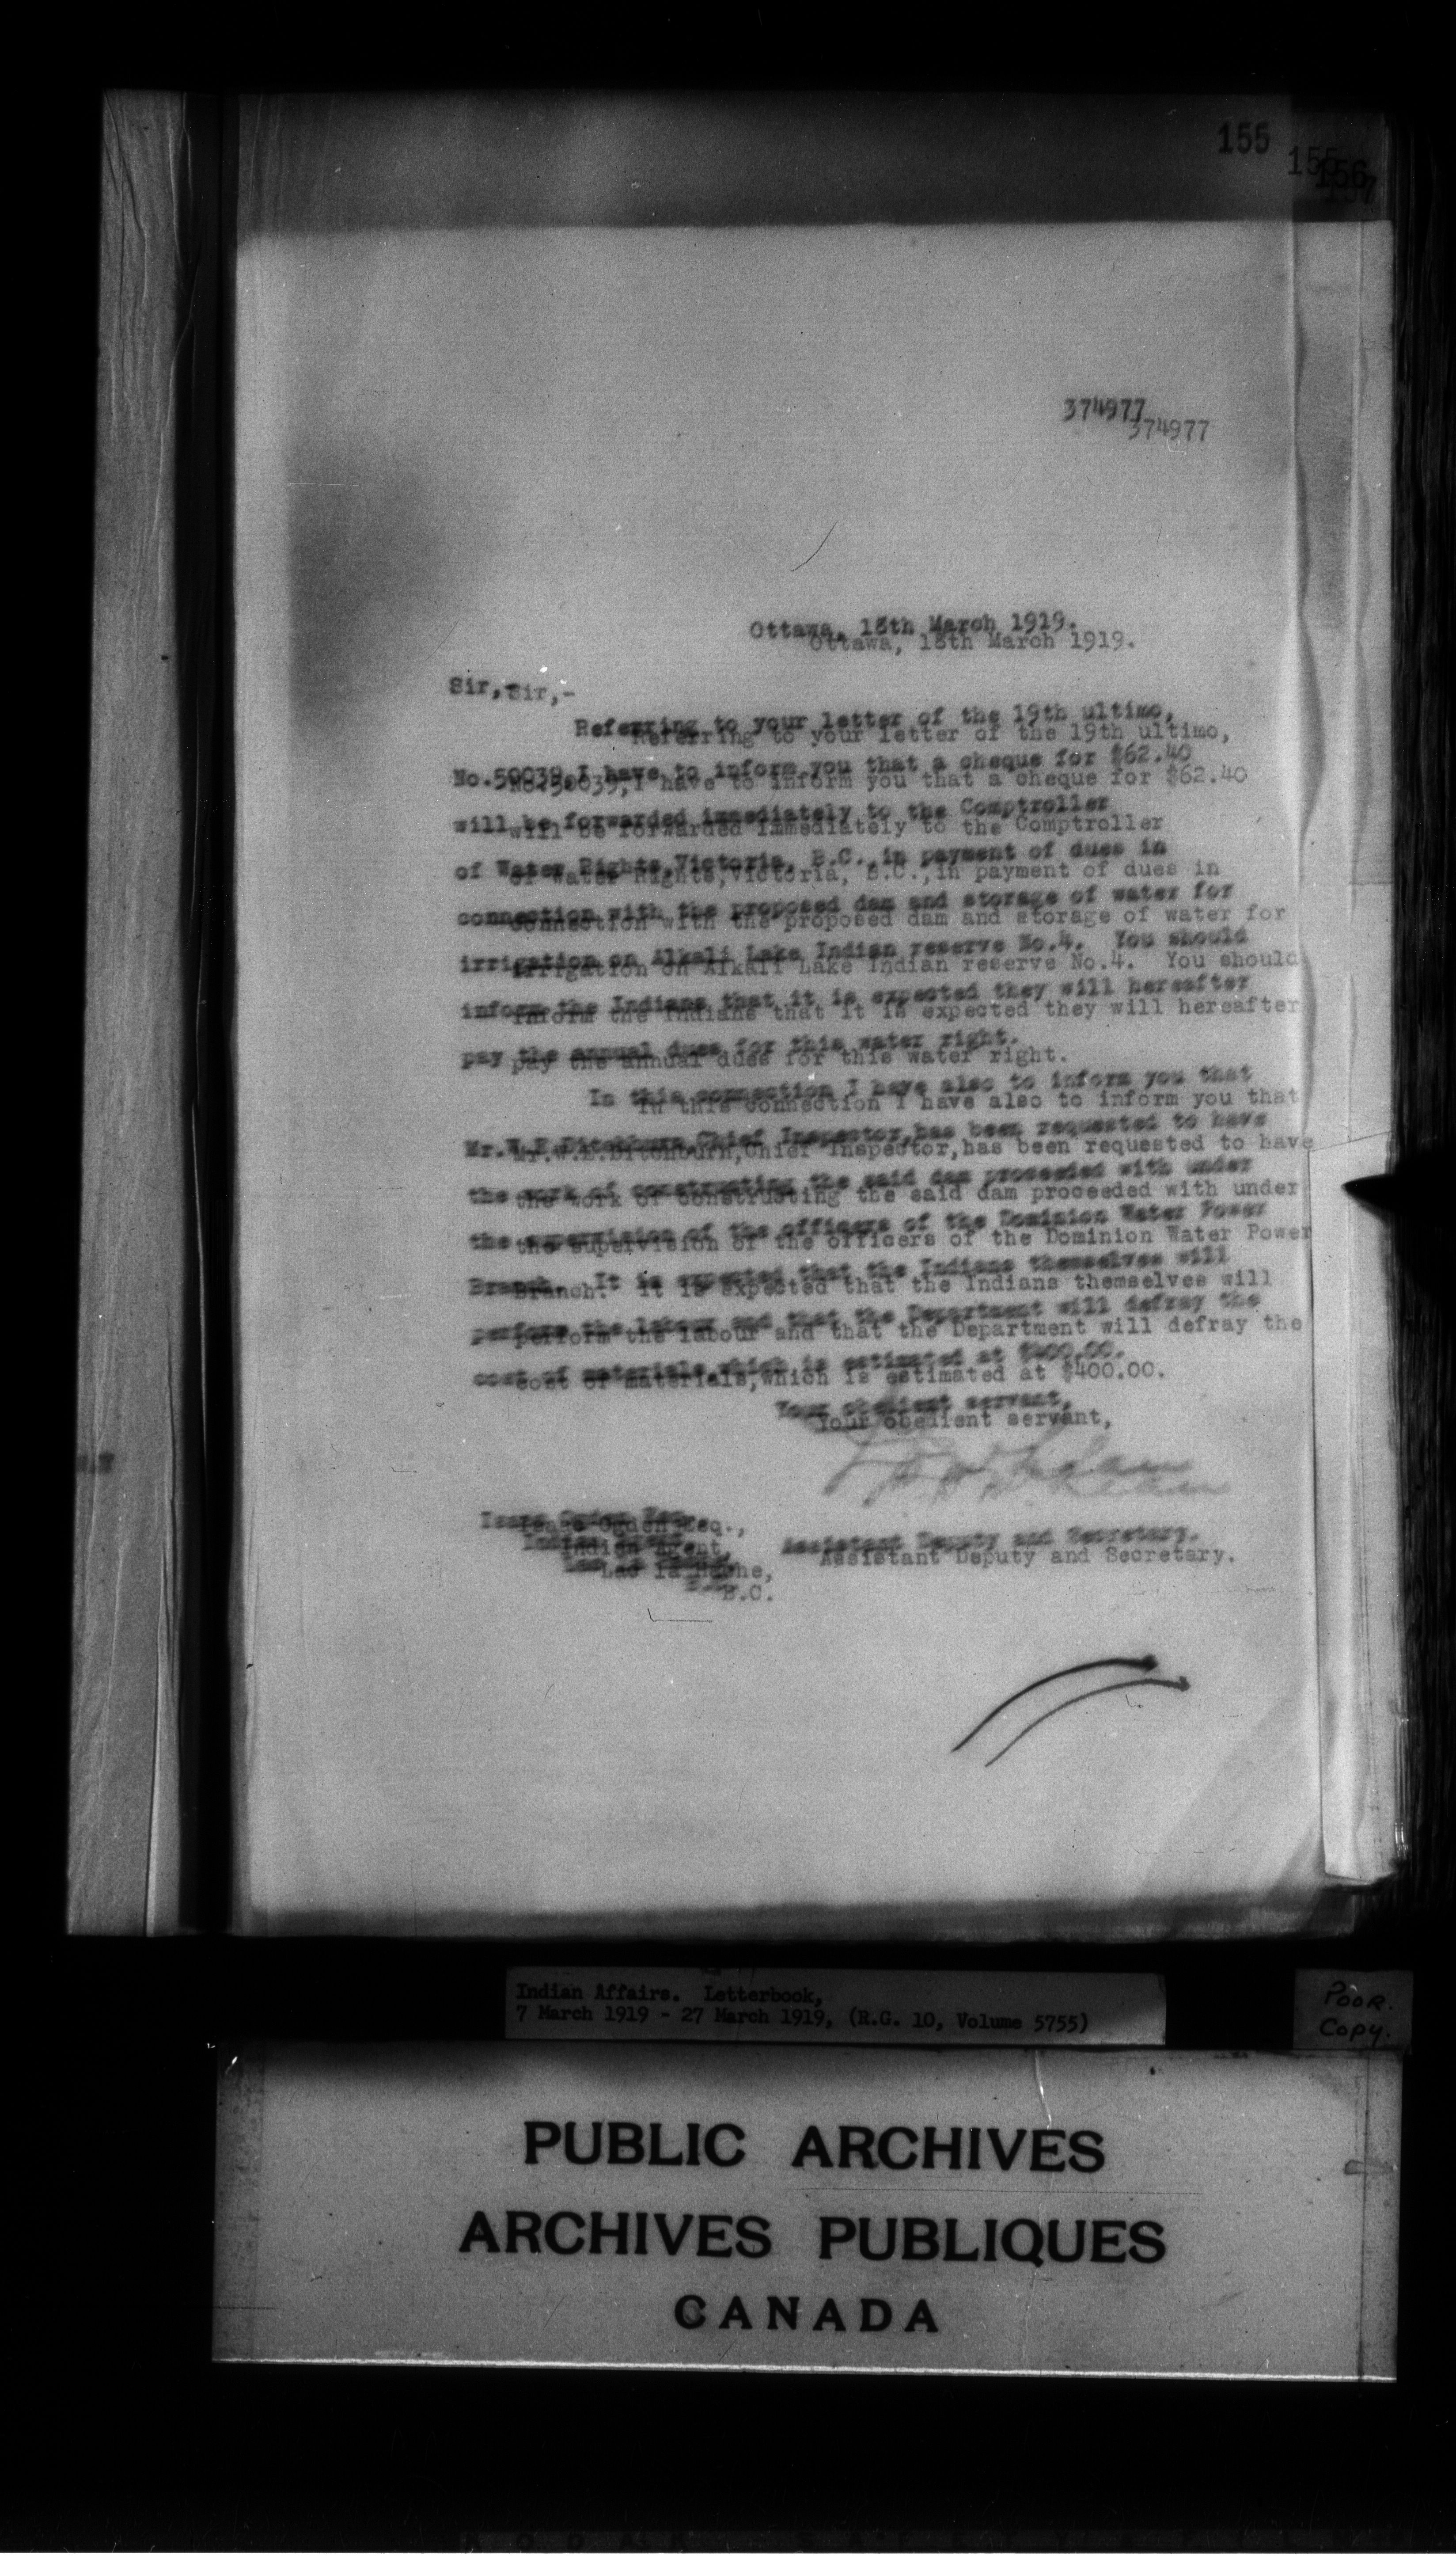 155
155
156
157
374977
374977
Ottawa, 18th March 1919.
Sir,-
Referring to your letter of the 19th ultimo,
No.50039,I have to inform you that a cheque for $62.40
will be forwarded immediately to the Comptroller
of Water Rights,Victoria, B.C.,in payment of dues in
connection with the proposed dam and storage of water for
irrigation on Alkali Lake Indian reserve No.4. You should
inform the Indians that it is expected they will hereafter
pay the annual dues for this water right.
In this connection I have also to inform you that
Mr.W.E.Ditchburn,Chief Inspector,has been requested to have
the work of constructing the said dam proceeded with under
the supervision of the officers of the Dominion Water Power
Branch. It is expected that the Indians themselves will
perform the labour and that the Department will defray the
cost of materials,which is estimated at $400.00.
Your obedient servant,
Isaac Ogden Esq.,
Indian Agent,
Lac la Hache,
B.C.
Assistant Deputy and Secretary.
Indian Affairs. Letterbook,
7 March 1919 - 27 March 1919, (R.G. 10, Volume 5755)
POOR.
COPY.
PUBLIC ARCHIVES
ARCHIVES PUBLIQUES
CANADA